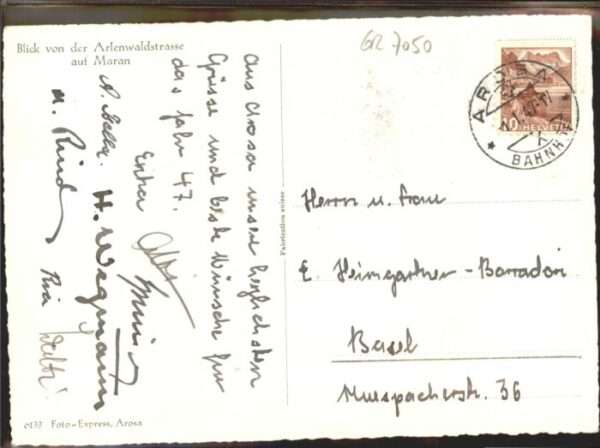 Blick von der Arlenwaldstrasse
auf Maran
GR 7050
Aus Arosa unsere herzlichsten
Grüsse und beste Wünsche für
das Jahr 47.
H. Wegmann
Ria
AROSA
BAHNHOF
10 HELVETIA
Herrn u. Frau
E. Heimgartner - Barradori
Basel
Muespacherstr. 36
6133 Foto-Express, Arosa